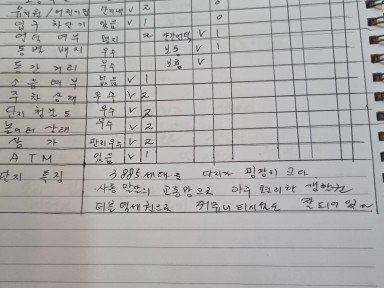 유치원/어린이집 단지내 v 2
입구 차단기 있음 v 1 0
언덕 여부 평지 2 v 1
동별 배치 우수 보통 v 1
동간 거리 우수 보통 v
소음 여부 없음 v 1
주차 상태 우수 v 2
단지 청결도 우수 v 2
놀이터 상태 우수 v 2
상가 관리우수 v 2
ATM 있음 v 1
단지 특징 3885세대 단지가 굉장히 크다
사통팔달의 교통망으로 아주 편리한 생활권
더블 역세권으로 커뮤니티시설도 잘 되어 있어